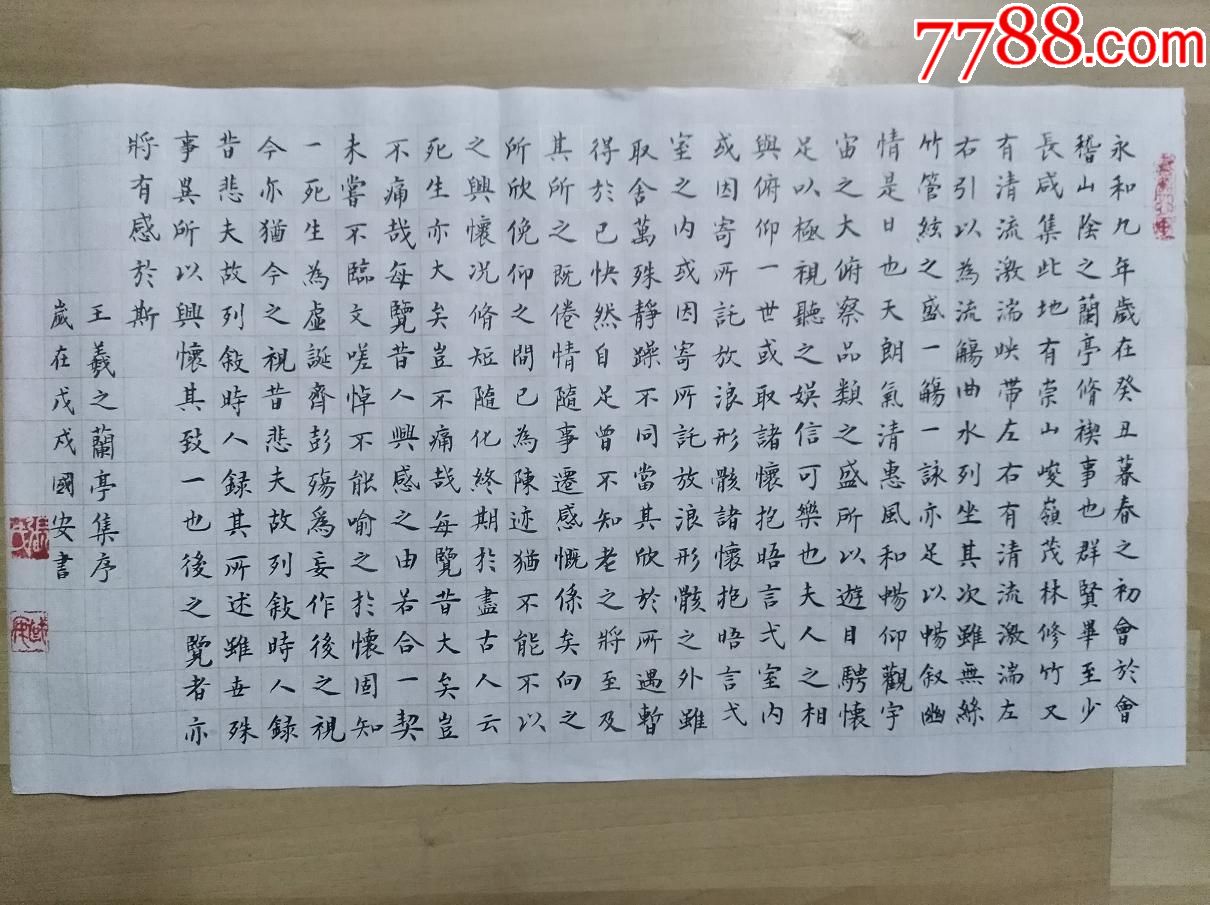 7788.com
永和九年歲在癸丑暮春之初會於會
稽山陰之蘭亭脩禊事也群賢畢至少
長咸集此地有崇山峻嶺茂林修竹又
有清流激湍映带左右有清流激湍左
右引以為流觴曲水列坐其次雖無絲
竹管絃之盛一觴一詠亦足以暢叙幽
情是日也天朗氣清惠風和暢仰觀宇
宙之大俯察品類之盛所以遊目騁懷
足以極視聽之娱信可樂也夫人之相
與俯仰一世或取諸懷抱晤言弌室内
或因寄所託放浪形骸諸懷抱晤言弌
室之内或因寄所託放浪形骸之外雖
取舍萬殊靜躁不同當其欣於所遇暫
得於已快然自足曾不知老之將至及
其所之既倦情隨事遷感慨係矣向之
所欣俛仰之間已為陳迹猶不能不以
之興懷况脩短隨化終期於盡古人云
死生亦大矣豈不痛哉每覽昔大矣豈
不痛哉每覽昔人興感之由若合一契
未嘗不臨文嗟悼不能喻之於懷固知
一死生為虛誕齊彭殤爲妄作後之視
今亦猶今之視昔悲夫故列敍時人録
昔悲夫故列敍時人録其所述雖世殊
事異所以興懷其致一也後之覽者亦
將有感於斯
王羲之蘭亭集序
歲在戊戌國安書